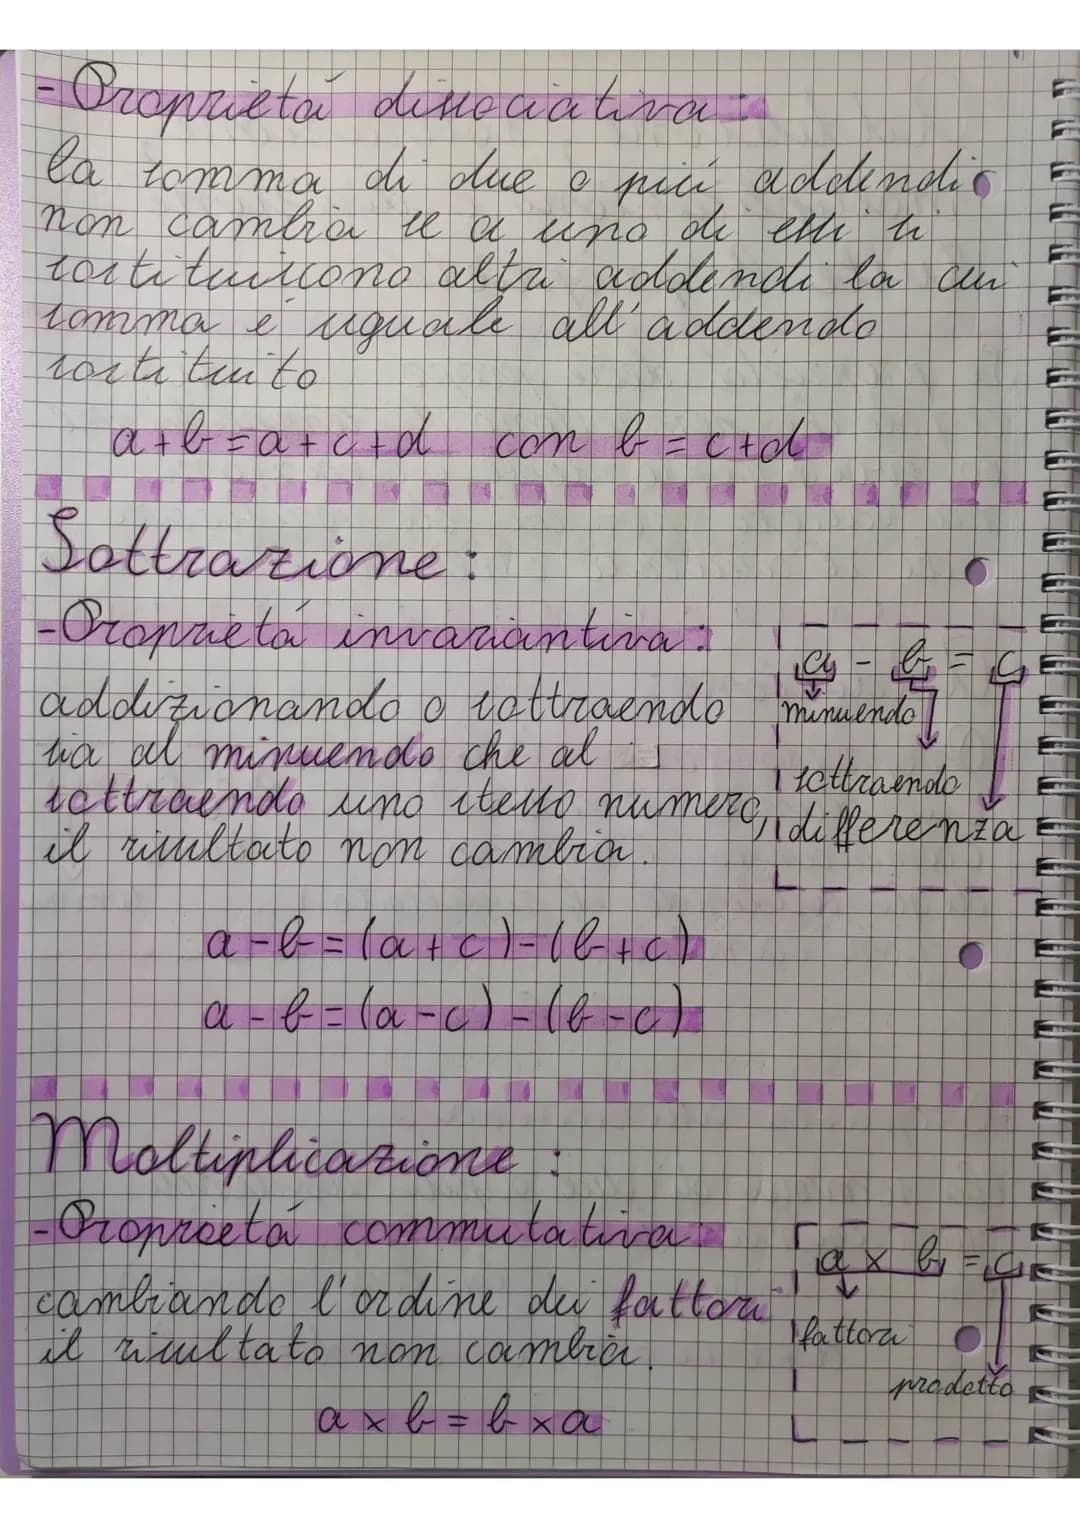 - Proprietá dissociativa:
la somma di due o piú addendi
non cambia se a uno di essi si
sostituiscono altri addendi la cui
somma é uguale all'addendo
sostituito
a+b=a+c+d con b=c+d
Sottrazione:
-Proprietá invariantiva:
addizionando o sottraendo
sia al minuendo che al
sottraendo uno stesso numero,
il risultato non cambia.
a - b = c
minuendo
sottraendo
differenza
a-b=(a+c)-(b+c)
a-b=(a-c)-(b-c)
Moltiplicazione:
-Proprietá commutativa:
cambiando l'ordine dei fattori
il risultato non cambia.
a x b = c
fattori
prodotto
a x b = b x a